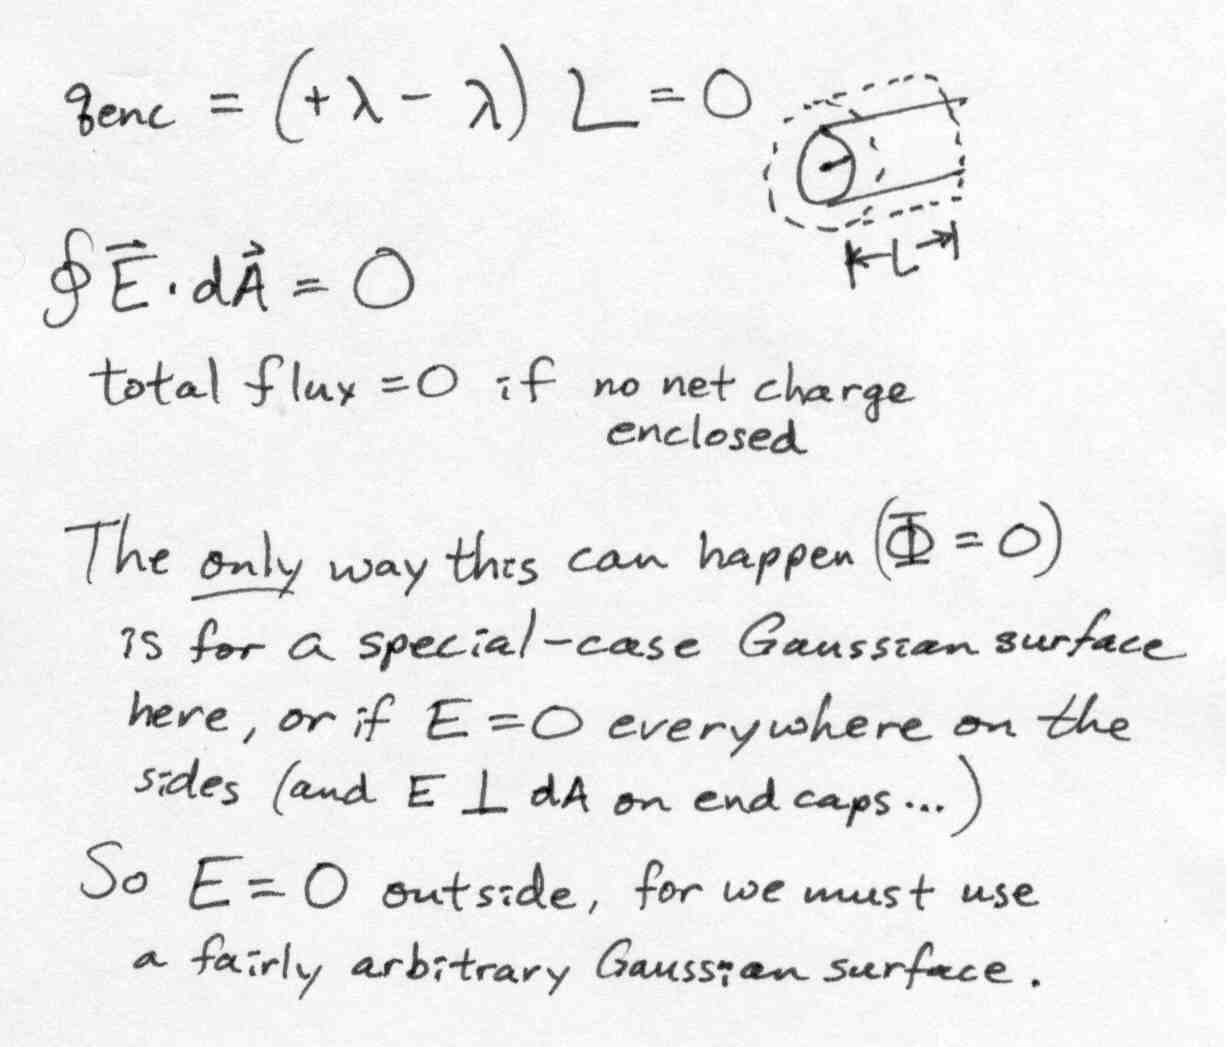 qenc = (+λ - λ) L = 0
L
∮ E⃗ · dA⃗ = 0
total flux = 0 if no net charge
enclosed
The only way this can happen (Φ = 0)
is for a special-case Gaussian surface
here, or if E = 0 everywhere on the
sides (and E ⊥ dA on end caps...)
So E = 0 outside, for we must use
a fairly arbitrary Gaussian surface.